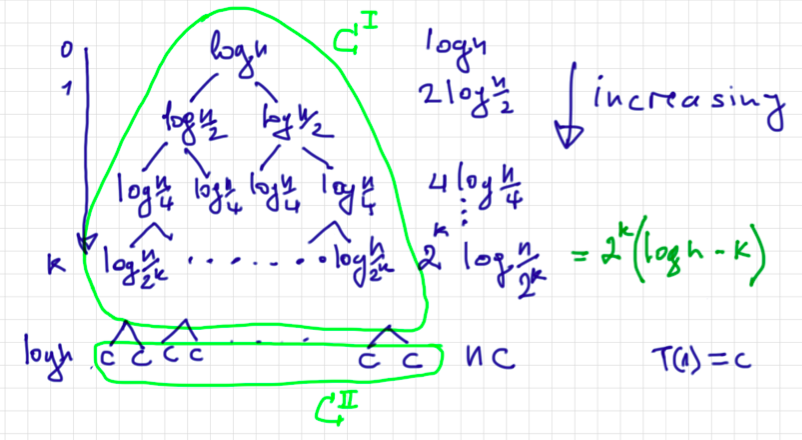 0 log n C^I log n
1 log n/2 log n/2 2 log n/2 increasing
log n/4 log n/4 log n/4 log n/4 4 log n/4
⋮
k log n/2^k . . . . . . . log n/2^k 2^k log n/2^k = 2^k(log n - k)
log n c c c c . . . . c c n c T(1) = c
C^II